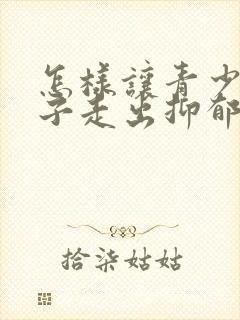 怎样讓青少
子走出抑郁
拾柒姑姑